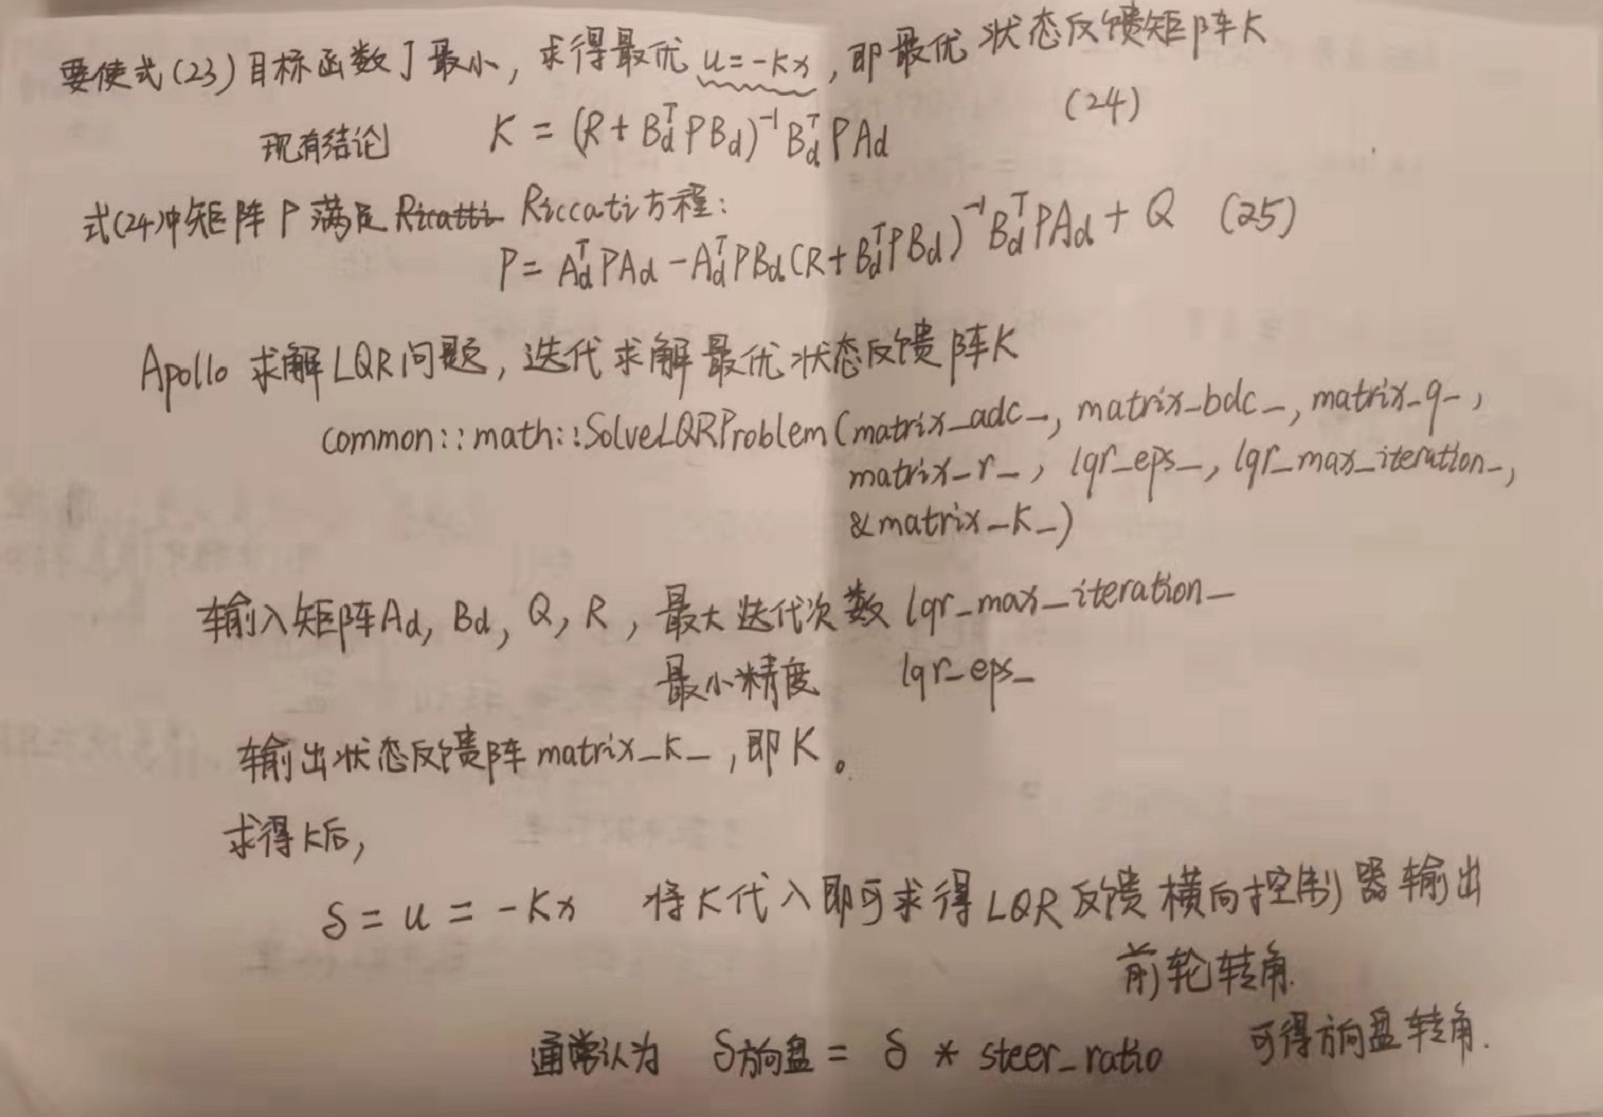 要使式(23)目标函数J最小，求得最优 u=-Kx，即最优状态反馈矩阵K
现有结论 K = (R + B_d^T P B_d)^{-1} B_d^T P A_d (24)
式(24)中矩阵P满足 Ricatti Riccati方程：
P = A_d^T P A_d - A_d^T P B_d (R + B_d^T P B_d)^{-1} B_d^T P A_d + Q (25)
Apollo 求解LQR问题，迭代求解最优状态反馈阵K
common::math::SolveLQRProblem(matrix_adc_, matrix_bdc_, matrix_q_,
matrix_r_, lqr_eps_, lqr_max_iteration_,
&matrix_k_)
输入矩阵Ad, Bd, Q, R，最大迭代次数 lqr_max_iteration_
最小精度 lqr_eps_
输出状态反馈阵 matrix_k_，即K。
求得K后，
δ = u = -Kx 将K代入即可求得LQR反馈横向控制器输出
前轮转角.
通常认为 δ方向盘 = δ * steer_ratio 可得方向盘转角.